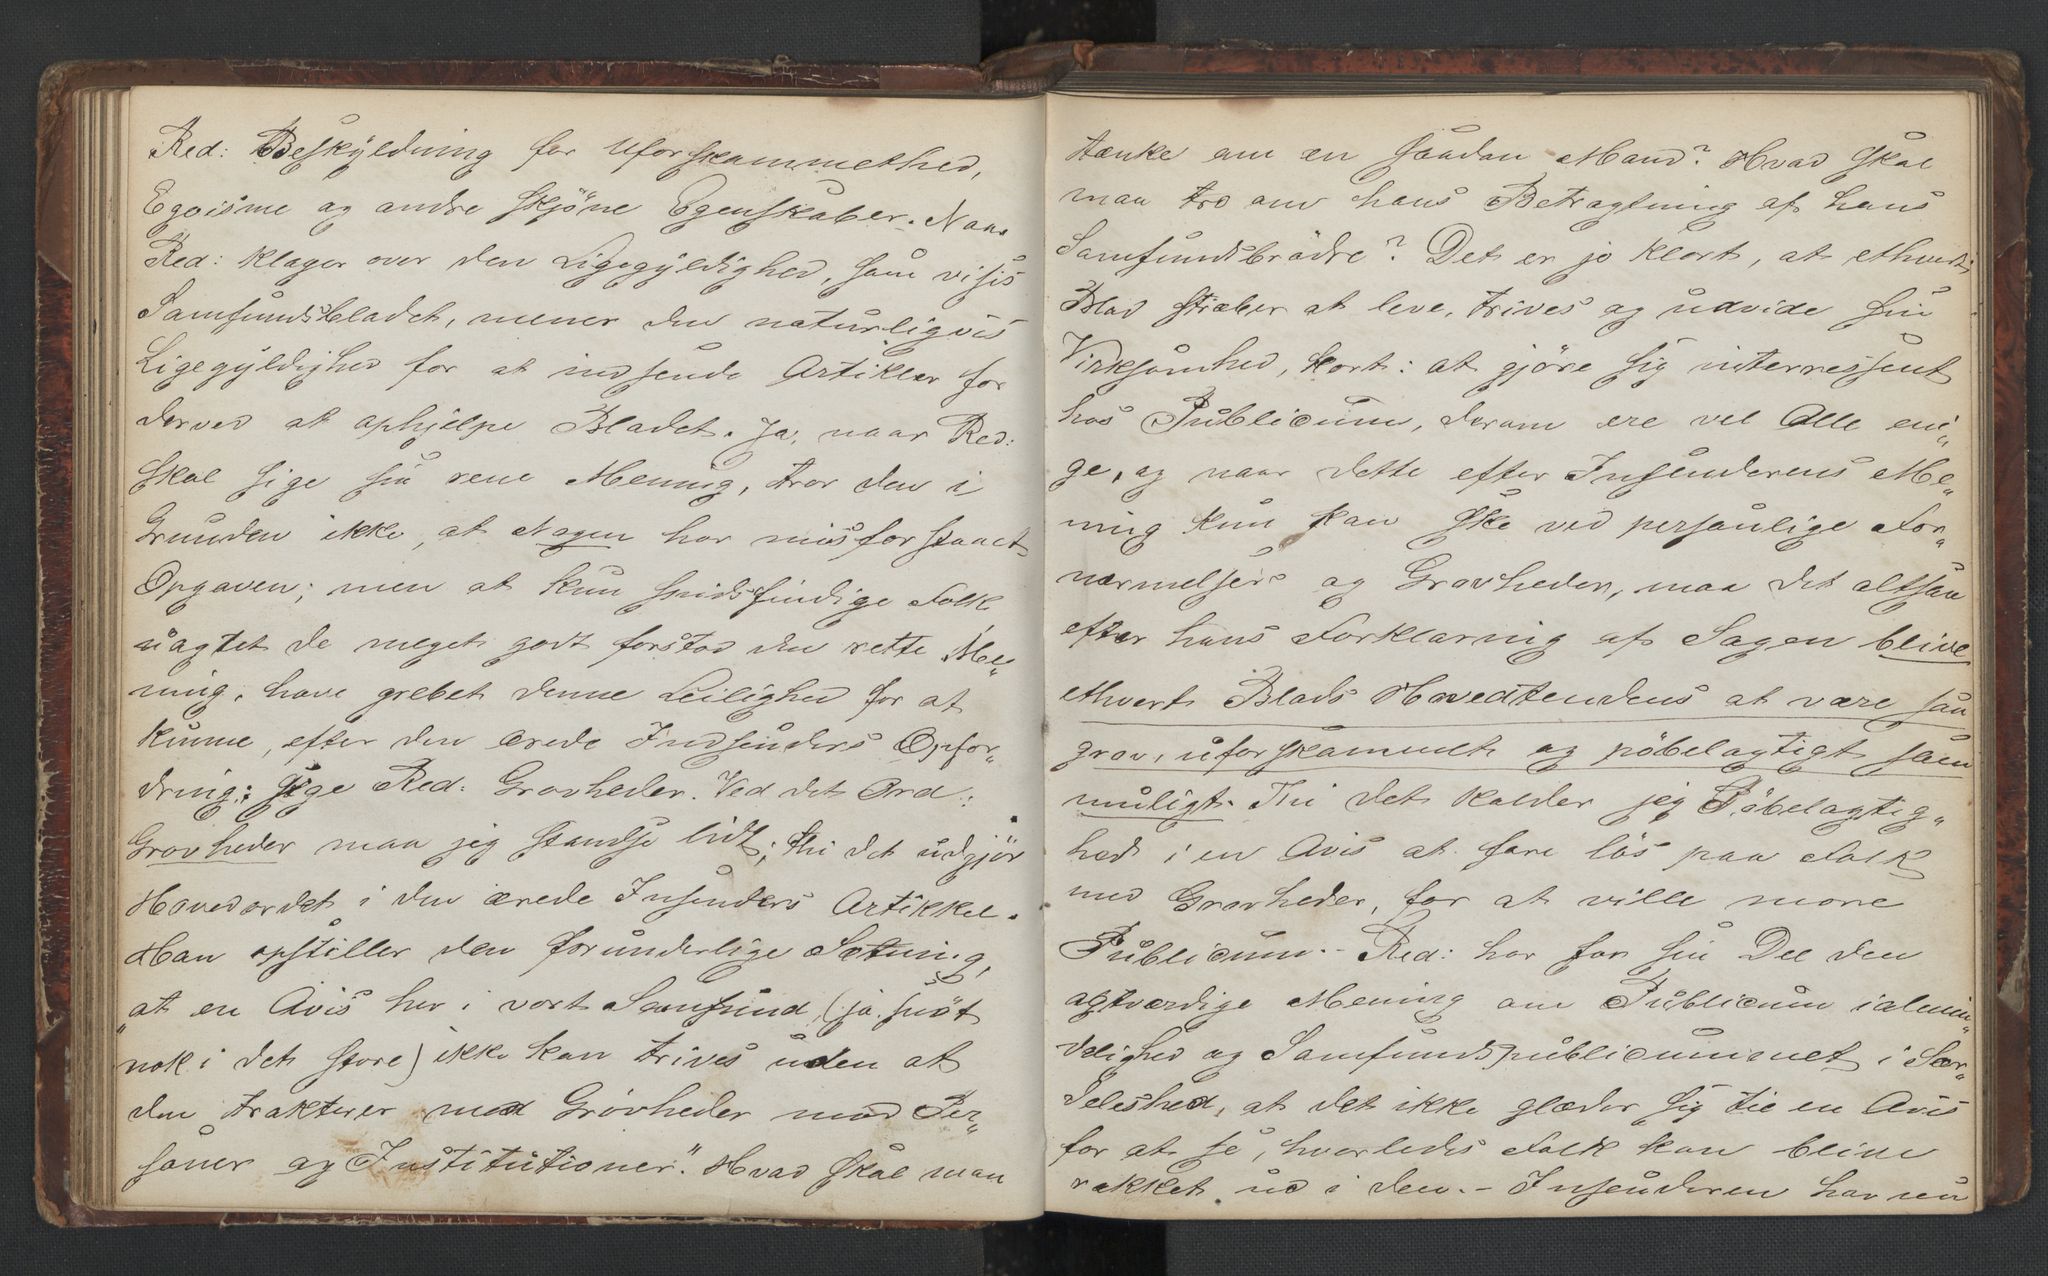 Red: Beskyldning for Uforskammethed,
Egoisme og andre skjöne Egenskaber. Naar
Red: klager over den Ligegyldighed, som vises
Samfundsbladet, mener den naturligvis
Ligegyldighed for at indsende Artikler for
derved at ophjelpe Bladet. Ja, naar Red:
skal sige sin rene Mening, tror den i
Grunden ikke, at Nogen har misforstaaet
Opgaven; men at kun spidsfindige Folk
uagtet de meget godt forstod den rette Me„
ning, have grebet denne Leilighed for at
kunne, efter den ærede Indsenders Opfor„
dring, sige Red: Grovheder. Ved det Ord:
Grovheder maa jeg standse lidt; thi det udgjör
Hovedordet i den ærede Insenders Artikkel.
Han opstiller den forunderlige Sætning,
„at en Avis her i vort Samfund (ja snöt
nok i det store) ikke kan trives uden at
den trakterer med Grovheder mod Per„
soner og Institutioner." Hvad skal man
tænke om en saadan Mand? Hvad skal
maa tro om hans Betragtning af hans
Samfundsbrödre? Det er jo klart, at ethvert
Blad stræber at leve, trives og udvide sin
Virksomhed, kort: at gjöre sig interressent
hos Publicum, derom ere vel Alle eni„
ge, og naar dette efter Insenderens Me„
ning kun kan ske ved personlige For„
nærmelser og Grovheder, maa det altsaa
efter hans Forklaring af Sagen blive
ethvert Blads Hovedtendens at være saa
grov, uforskammet og pöbelagtigt som
muligt. Thi det kalder jeg Pöbelagtig„
hed i en Avis at fare lös paa Folk
med Grovheder, for at ville more
Publicum. – Red: har for sin Del den
agtværdige Mening om Publicum i almin„
delighed og Samfundspublicummet i Sær„
deleshed, at det ikke glæder sig til en Avis
for at se, hvorledes Folk kan blive
rakket ud i den. – Insenderen har nu